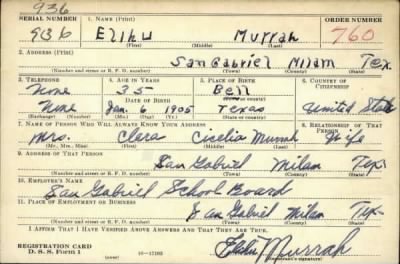 936
SERIAL NUMBER 1. NAME (Print) ORDER NUMBER
936 Elihu Murrah 760
(First) (Middle) (Last)
2. ADDRESS (Print)
San Gabriel Milam Tex.
(Number and street or R. F. D. number) (Town) (County) (State)
3. TELEPHONE 4. AGE IN YEARS 5. PLACE OF BIRTH 6. COUNTRY OF CITIZENSHIP
None 35 Bell
DATE OF BIRTH (Town or county)
None Jan. 6 1905 Texas United States
(Exchange) (Number) (Mo.) (Day) (Yr.) (State or country)
7. NAME OF PERSON WHO WILL ALWAYS KNOW YOUR ADDRESS 8. RELATIONSHIP OF THAT PERSON
Mrs. Clera Cicelia Murrah Wife
(Mr., Mrs., Miss) (First) (Middle) (Last)
9. ADDRESS OF THAT PERSON
San Gabriel Milam Tex.
(Number and street or R. F. D. number) (Town) (County) (State)
10. EMPLOYER'S NAME
San Gabriel School Board
11. PLACE OF EMPLOYMENT OR BUSINESS
San Gabriel Milam Tex.
(Number and street or R. F. D. number) (Town) (County) (State)
I AFFIRM THAT I HAVE VERIFIED ABOVE ANSWERS AND THAT THEY ARE TRUE.
Elihu Murrah
REGISTRATION CARD
D. S. S. Form 1 (Registrant's signature)